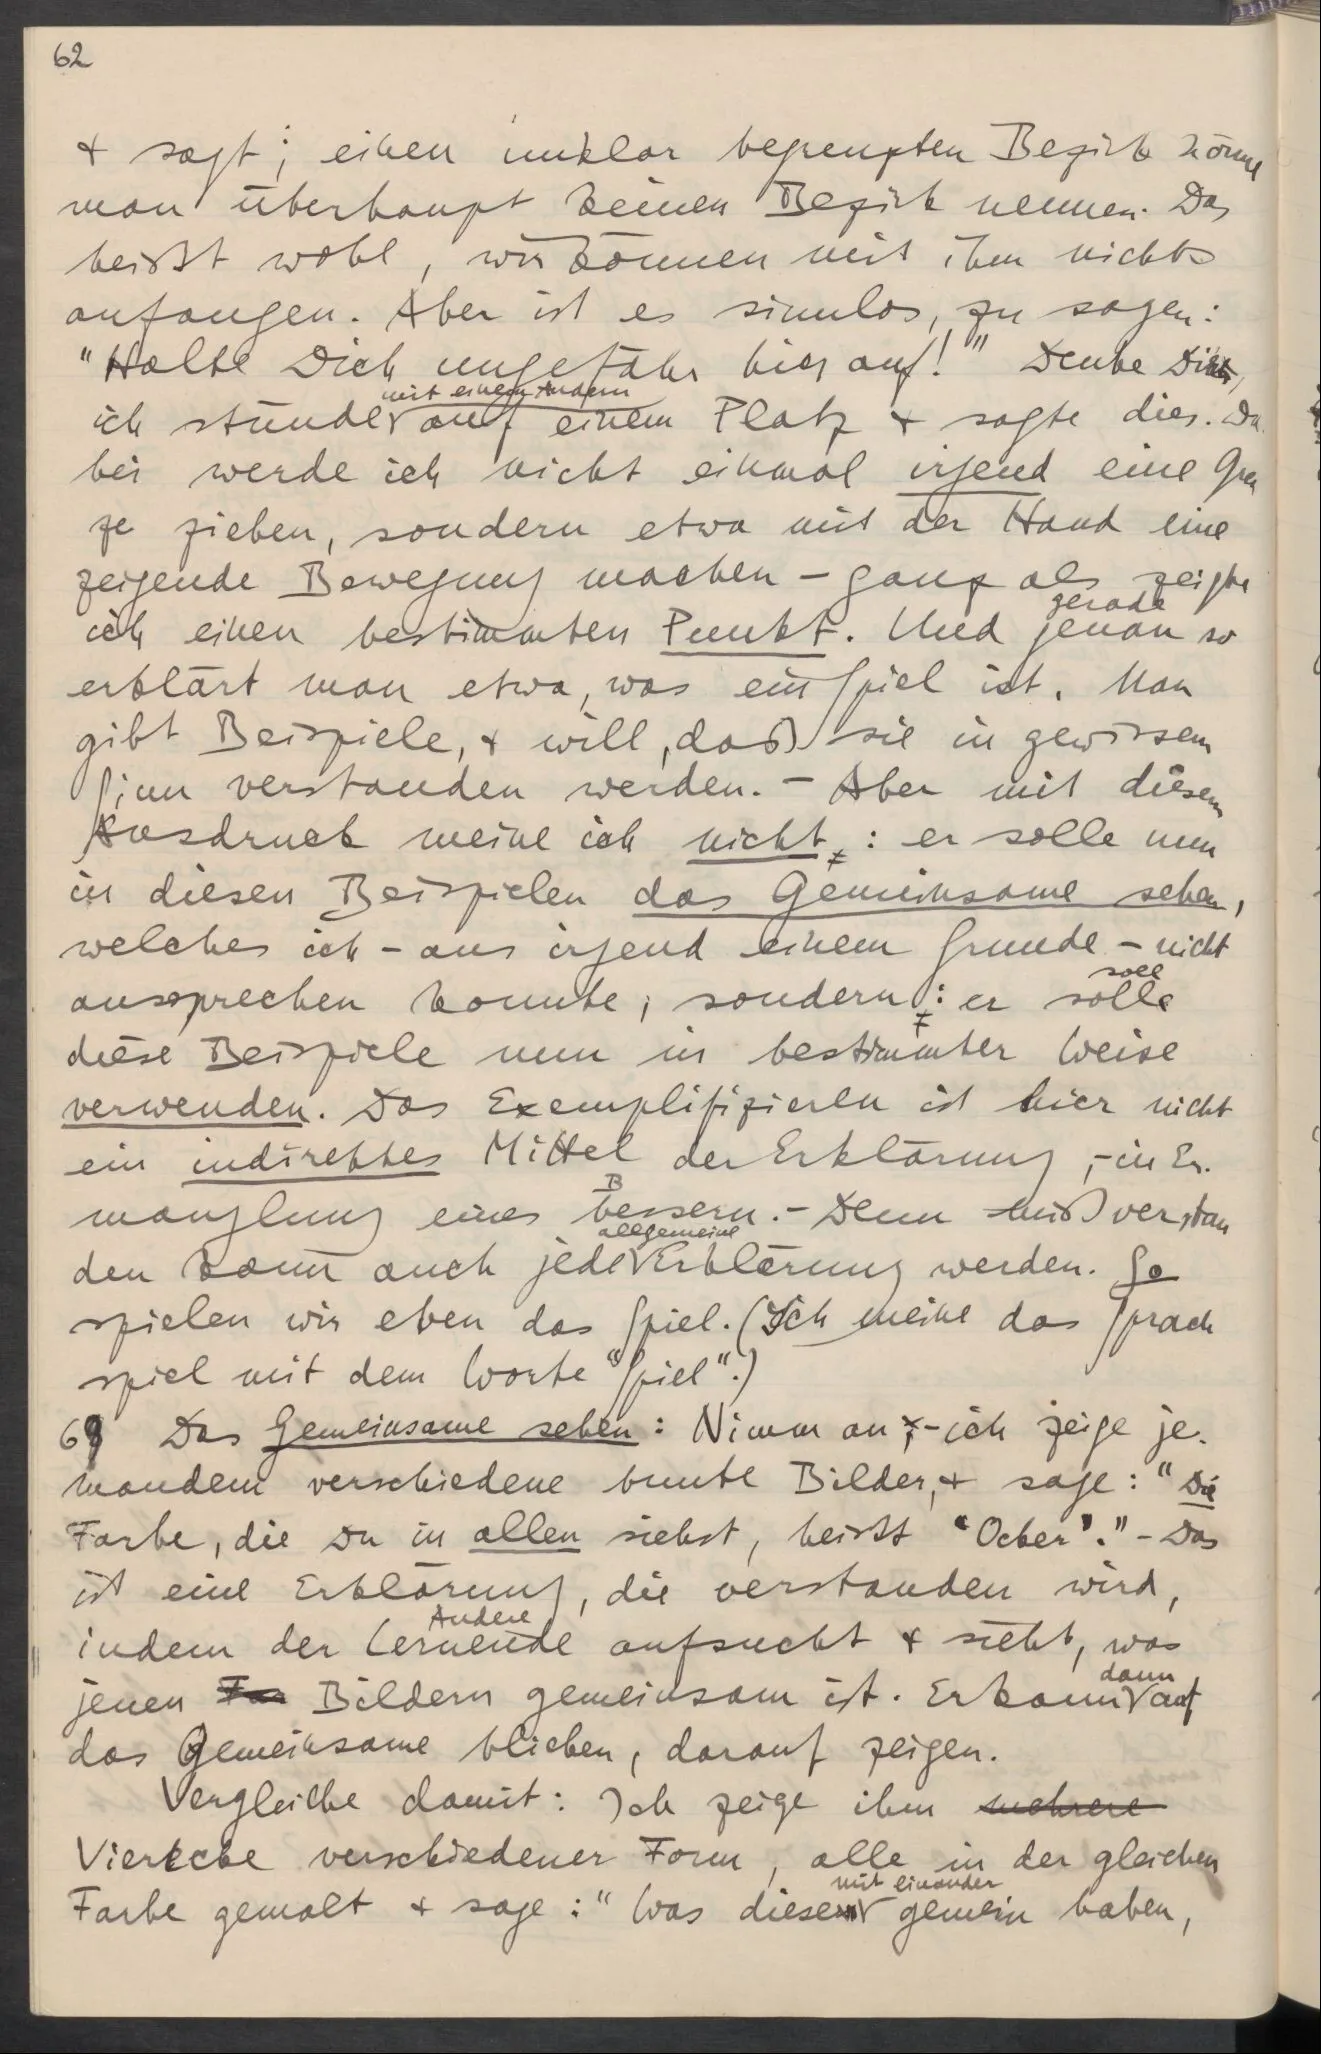 62
& sagt; einen unklar begrenzten Bezirk könne
man überhaupt keinen Bezirk nennen. Das
heißt wohl, wir können mit ihm nichts
anfangen. Aber ist es sinnlos, zu sagen:
"Halte Dich ungefähr hier auf!" Denke Dir,
mit einem Andern
ich stünde auf einem Platz & sagte dies. Da
bei werde ich nicht einmal irgend eine Gren
ze ziehen, sondern etwa mit der Hand eine
zeigende Bewegung machen – ganz als zeigte
gerade
ich einen bestimmten Punkt. Und genau so
erklärt man etwa, was ein Spiel ist. Man
gibt Beispiele, & will, daß sie in gewissem
Sinn verstanden werden. – Aber mit diesem
Ausdruck meine ich nicht: er solle nun
in diesen Beispielen das Gemeinsame sehen,
welches ich – aus irgend einem Grunde – nicht
soll
aussprechen konnte; sondern: er solle
diese Beispiele nun in bestimmter Weise
verwenden. Das Exemplifizieren ist hier nicht
ein indirektes Mittel der Erklärung, – in Er-
B
manglung eines bessern. – Denn mißverstan
allgemeine
den kann auch jede Erklärung werden. So
spielen wir eben das Spiel. (Ich meine das Sprach
spiel mit dem Worte "Spiel".)
69 Das Gemeinsame sehen: Nimm an, – ich zeige je-
mandem verschiedene bunte Bilder, & sage: "Die
Farbe, die Du in allen siehst, heißt 'Ocker'." – Das
ist eine Erklärung, die verstanden wird,
Andere
indem der Lernende aufsucht & sieht, was
dann
jenen Bildern gemeinsam ist. Er kann auf
das Gemeinsame blicken, darauf zeigen.
Vergleiche damit: Ich zeige ihm mehrere
Vierecke verschiedener Form, alle in der gleichen
mit einander
Farbe gemalt & sage: "Was diese gemein haben,